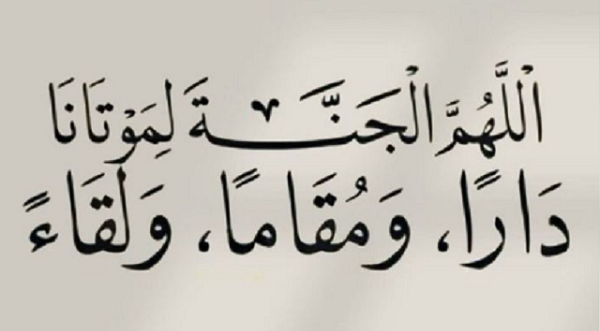 اللَّهُمَّ الْجَنَّةَ لِمَوْتَانَا
دَارًا، وَمُقَامًا، وَلِقَاءً